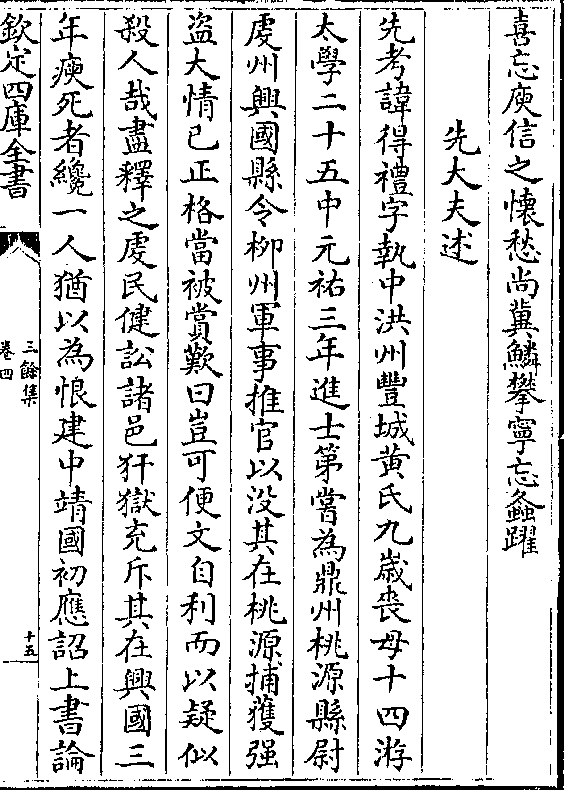 喜忘庾信之懐愁尚冀鱗攀寧忘螽躍
先大夫述
先考諱得禮字執中洪州豐城黄氏九歳喪母十四游
太學二十五中元祐三年進士第嘗為鼎州桃源縣尉
䖏州興國縣令柳州軍事推官以没其在桃源捕獲强
盗大情已正格當被賞歎曰豈可便文自利而以疑似
殺人哉盡釋之䖏民健訟諸邑犴獄充斥其在興國三
年瘐死者纔一人猶以為恨建中靖國初應詔上書論
欽定四庫全書
三餘集
卷四
十五